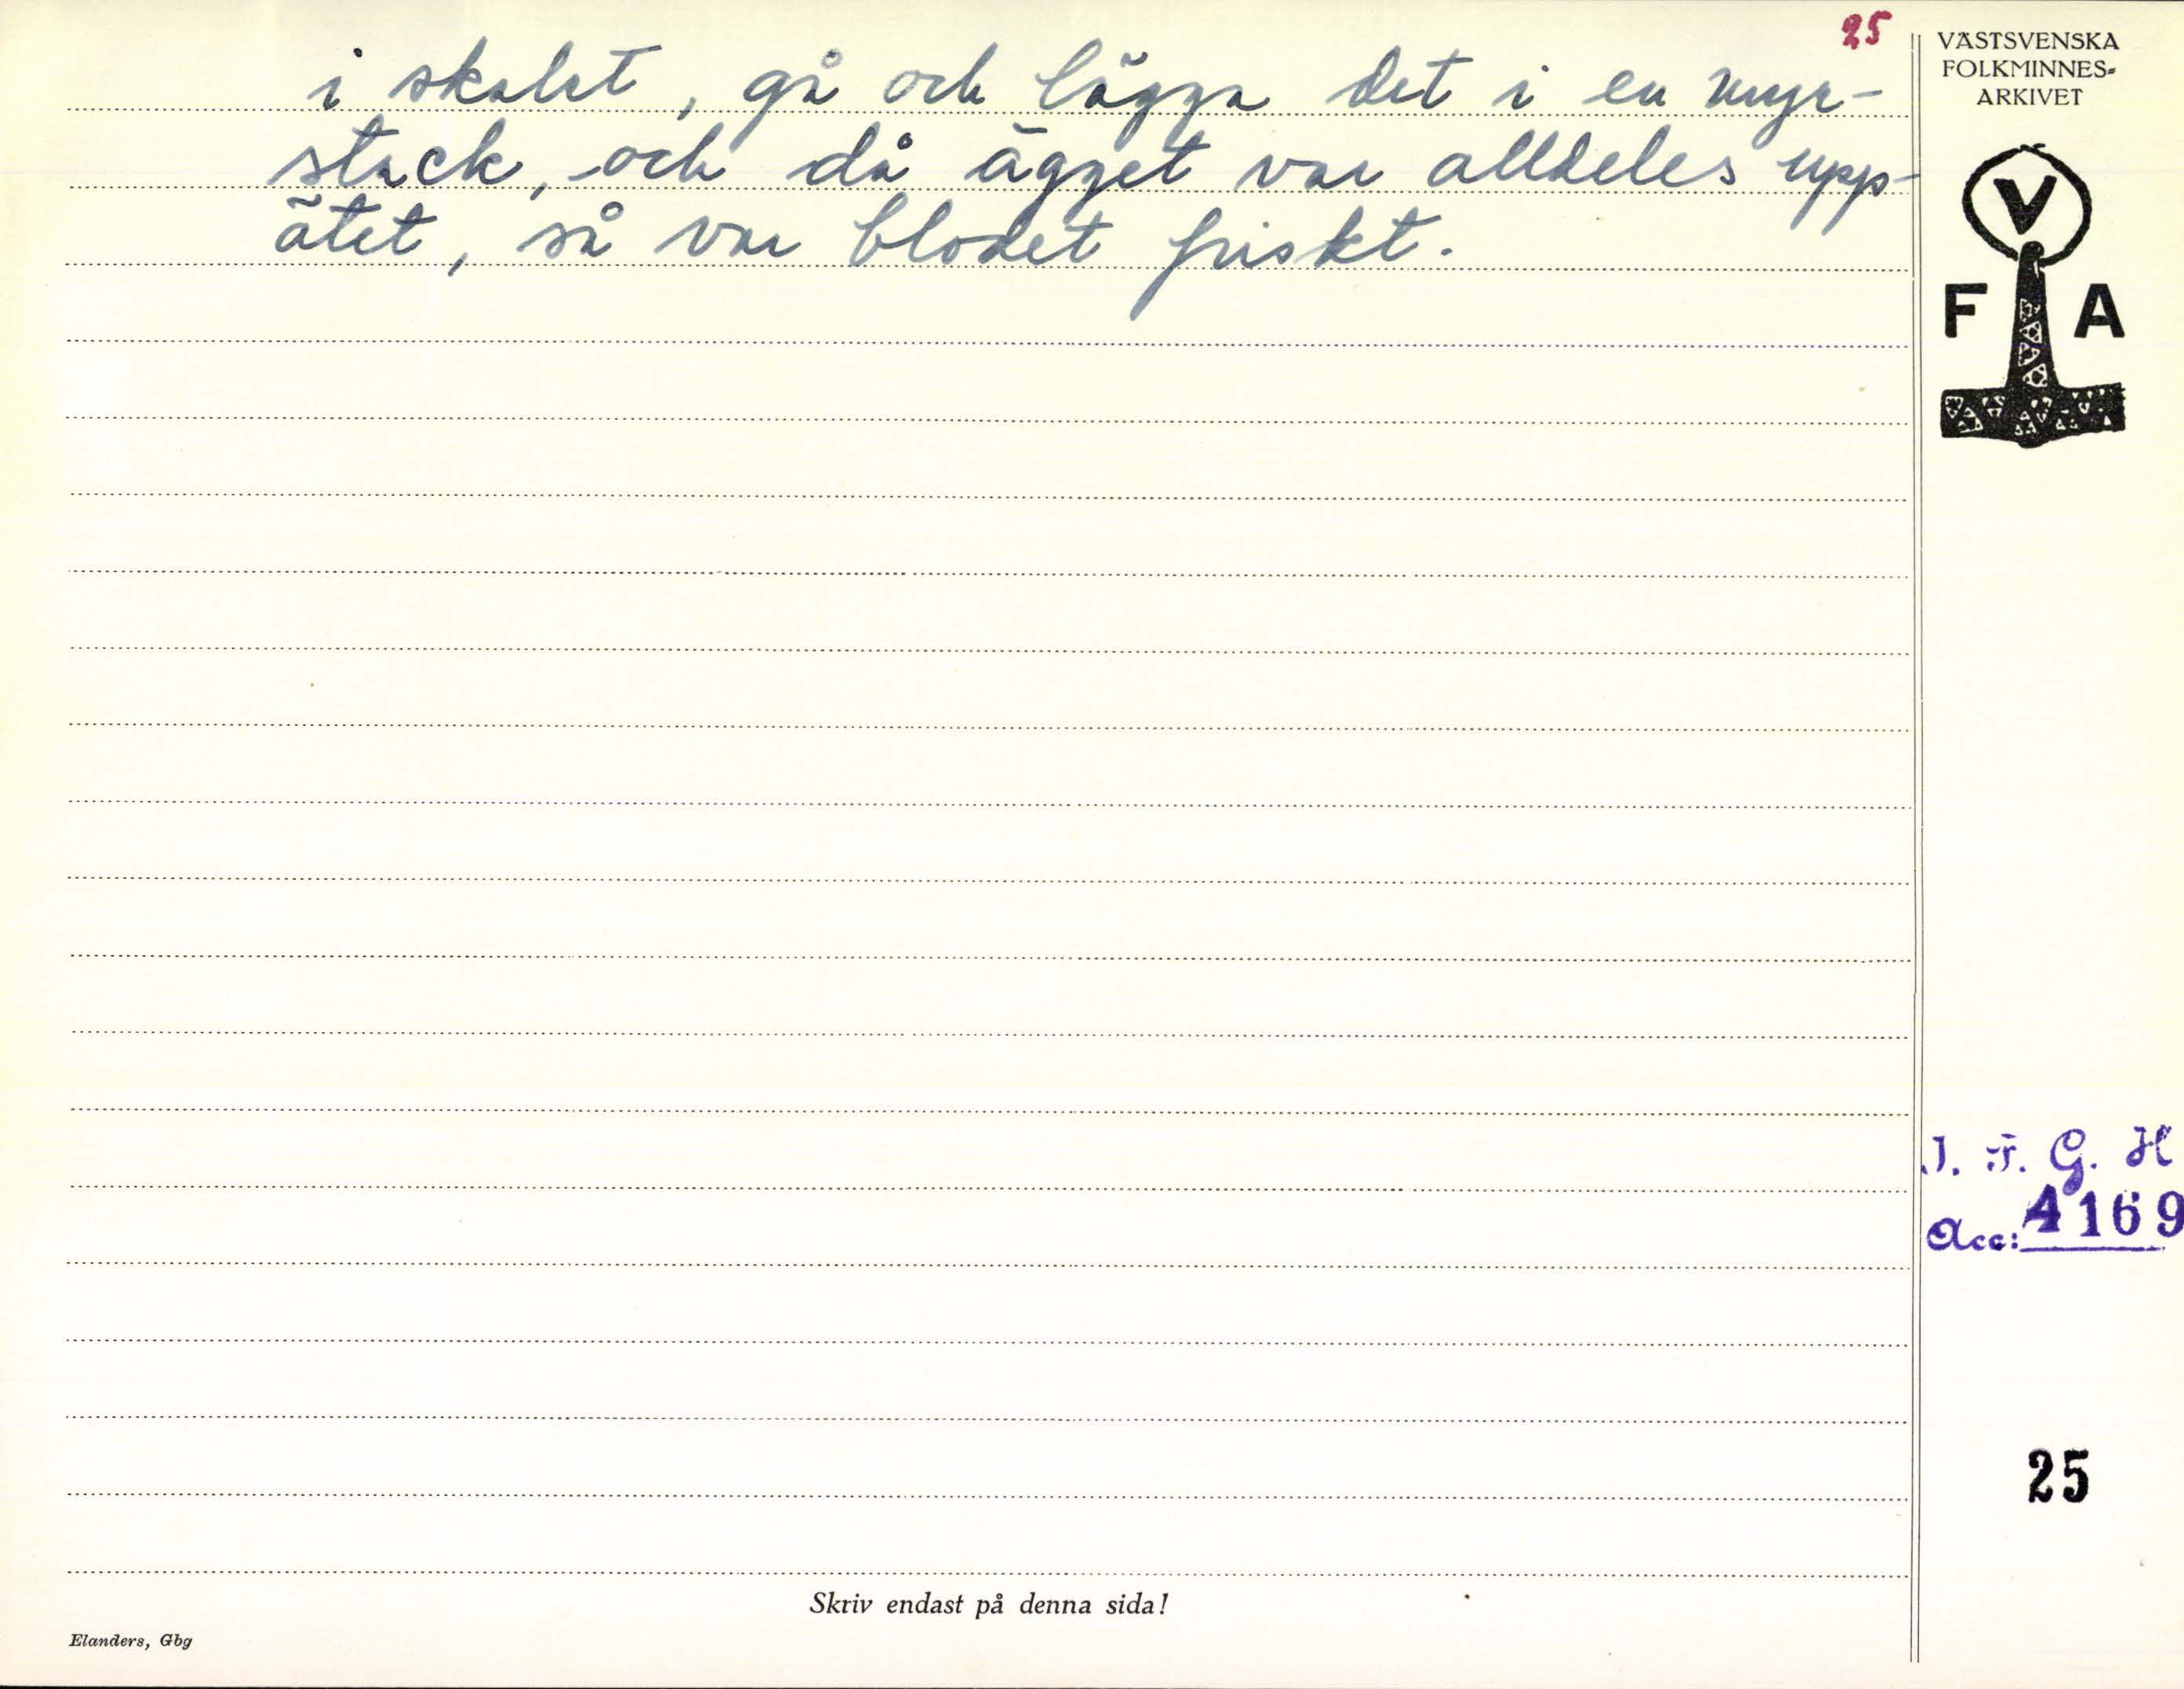 25
i skalet, gå och lägga det i en myr-
stack, och då ägget var alldeles upp-
ätet, så var blodet friskt.
VÄSTSVENSKA
FOLKMINNES-
ARKIVET
V
F A
I. F. G. H
Acc: 4169
25
Skriv endast på denna sida!
Elanders, Gbg